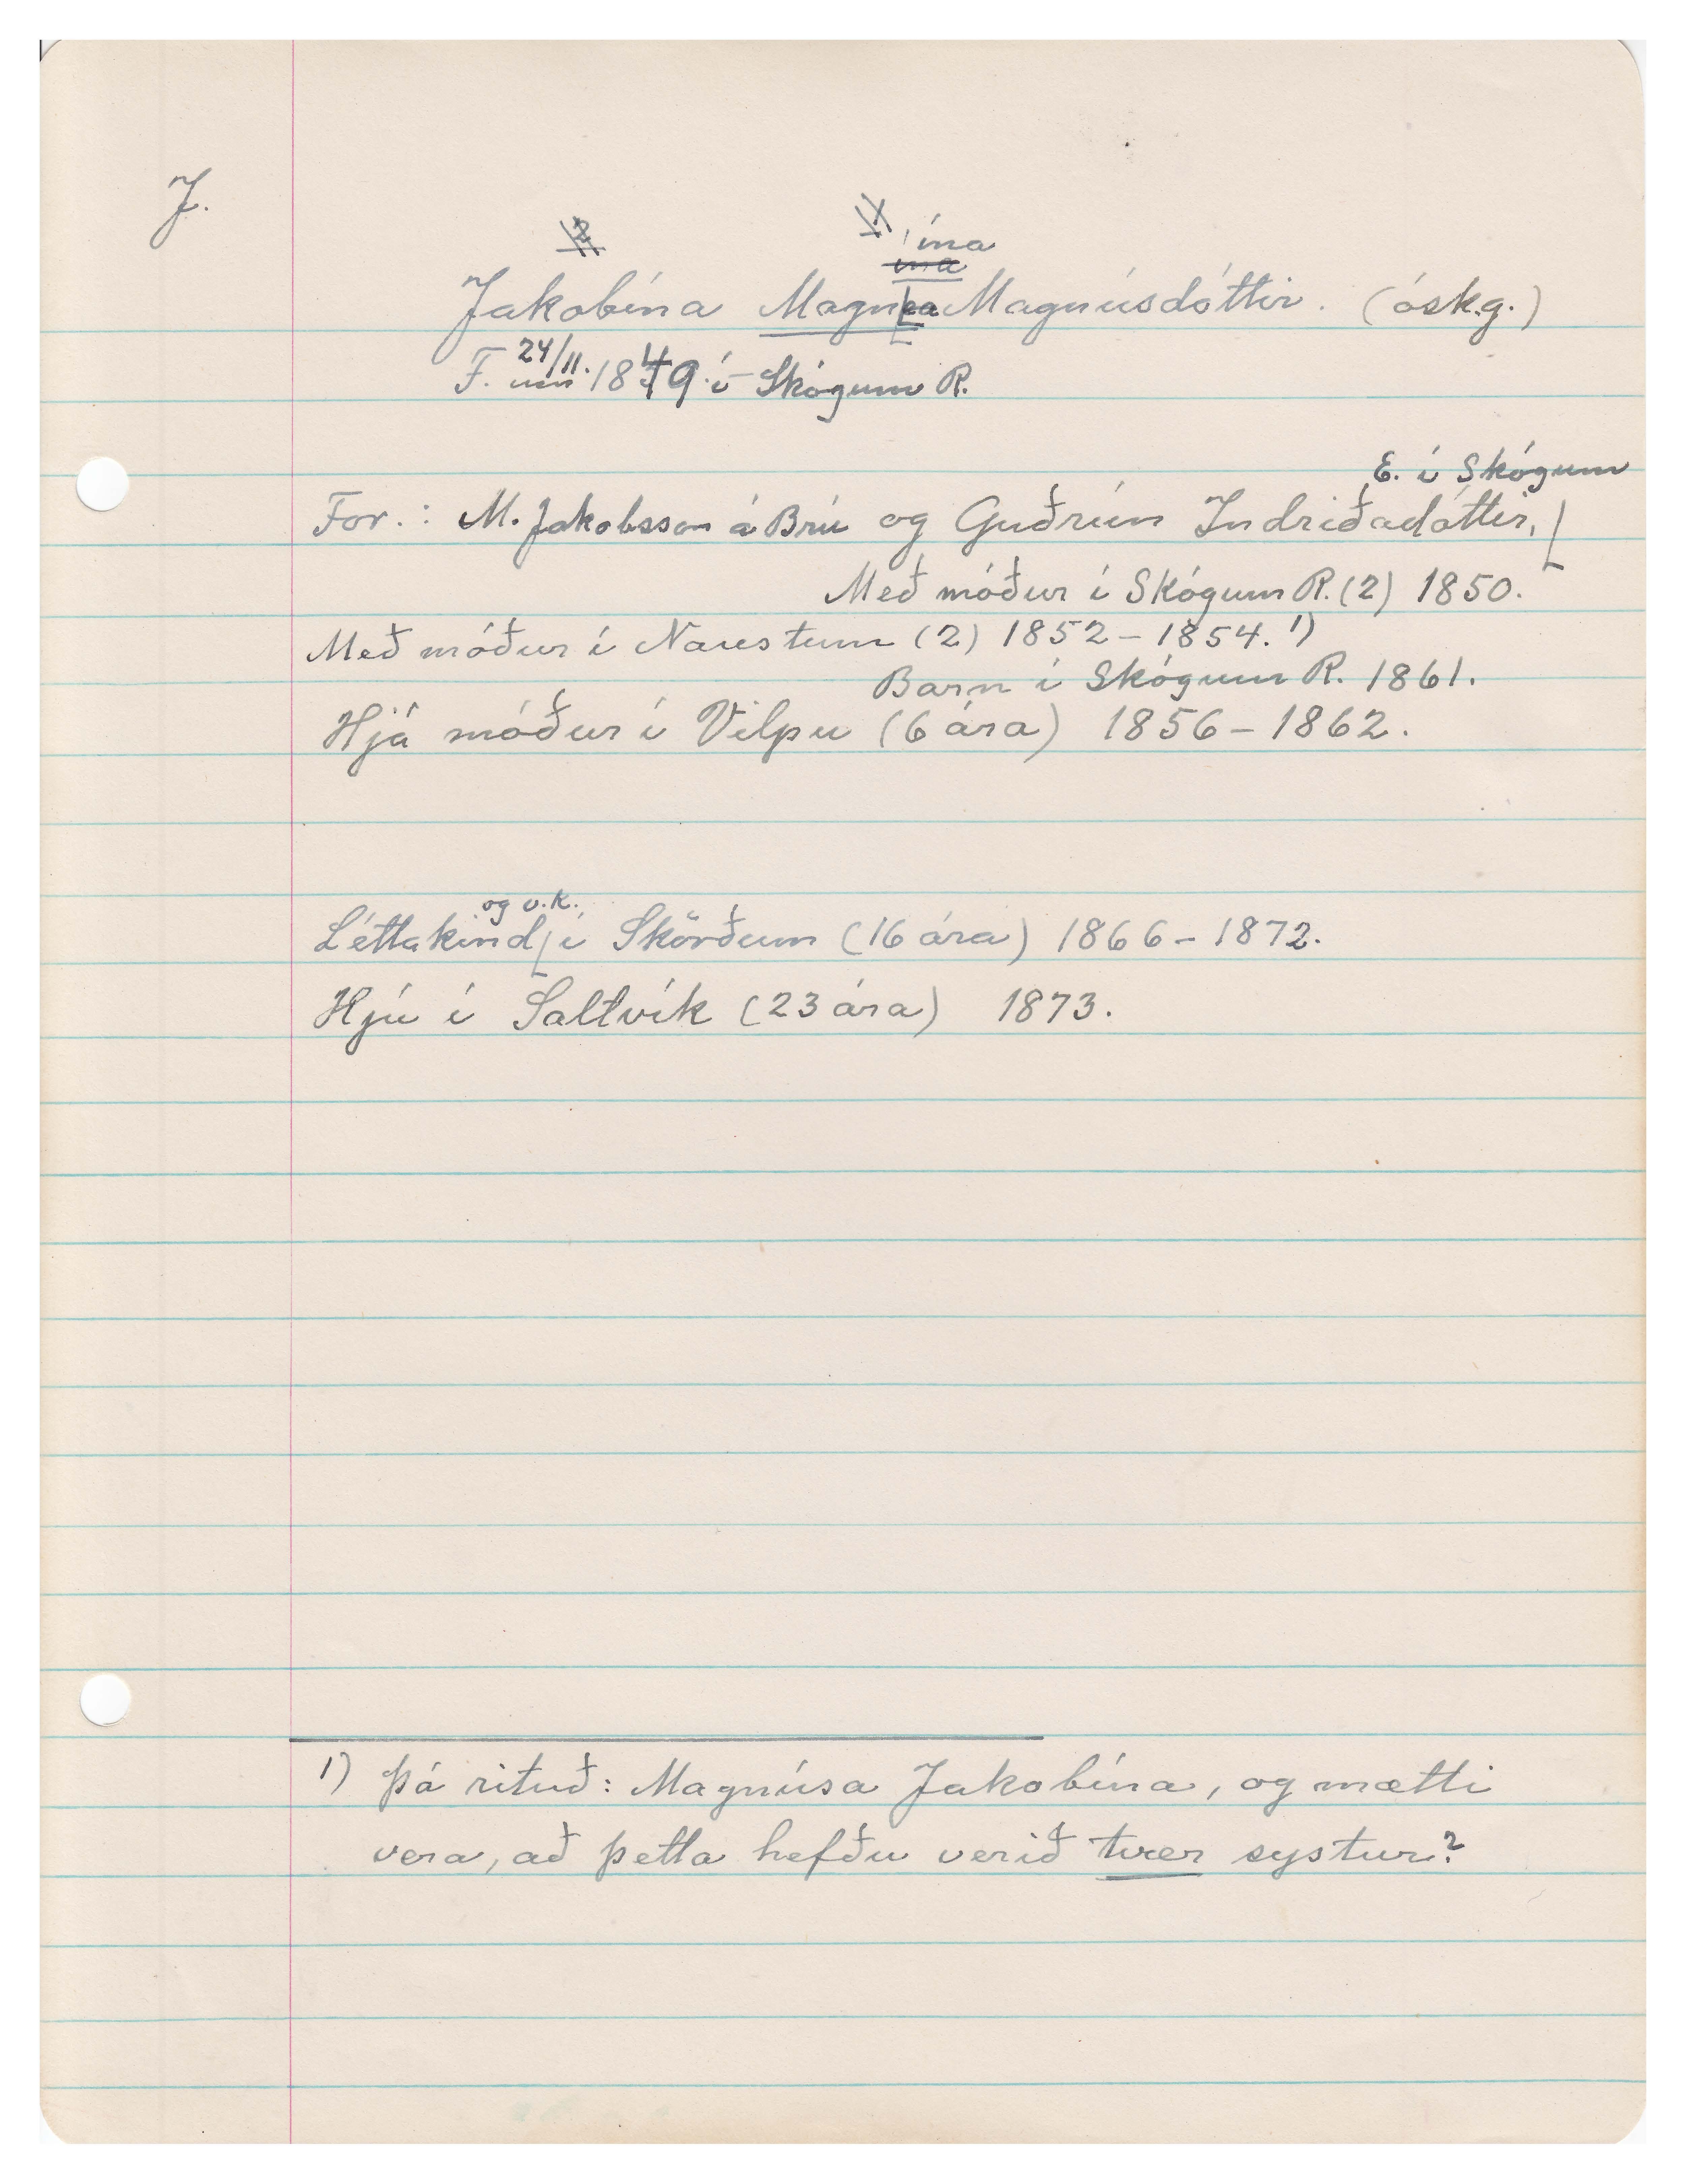 J.
ína
Jakobína Magnea Magnúsdóttir. (óskg.)
F. 24/11. 1849 í Skógum R.
E. í Skógum
For.: M. Jakobsson á Brú og Guðrún Indriðadóttir,
Með móður í Skógum R. (2) 1850.
Með móður í Naustum (2) 1852 - 1854. 1)
Barn í Skógum R. 1861.
Hjá móður í Vilpu (6 ára) 1856 - 1862.
og v.k.
Léttakind í Skörðum (16 ára) 1866 - 1872.
Hjú í Saltvík (23 ára) 1873.
1) Þá rituð: Magnúsa Jakobína, og mætti
vera, að þetta hefðu verið tvær systur?